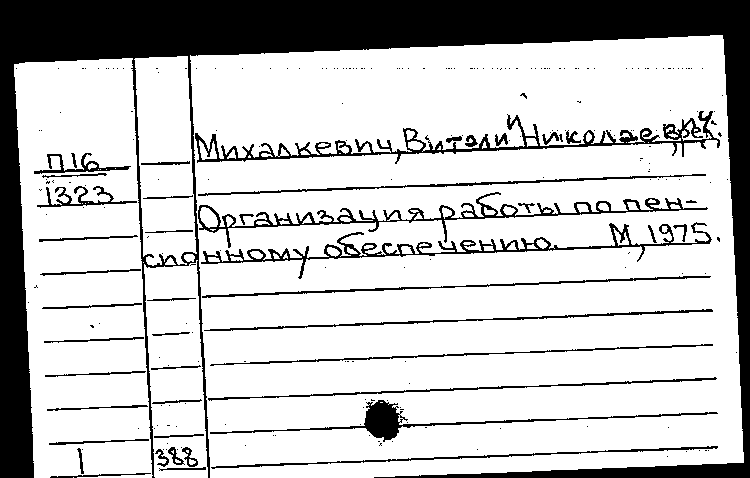 Михалкевич, Витали й Николаевич,
П16
1323
Организация работы по пен-
сионному обеспечению. М, 1975.
1 388